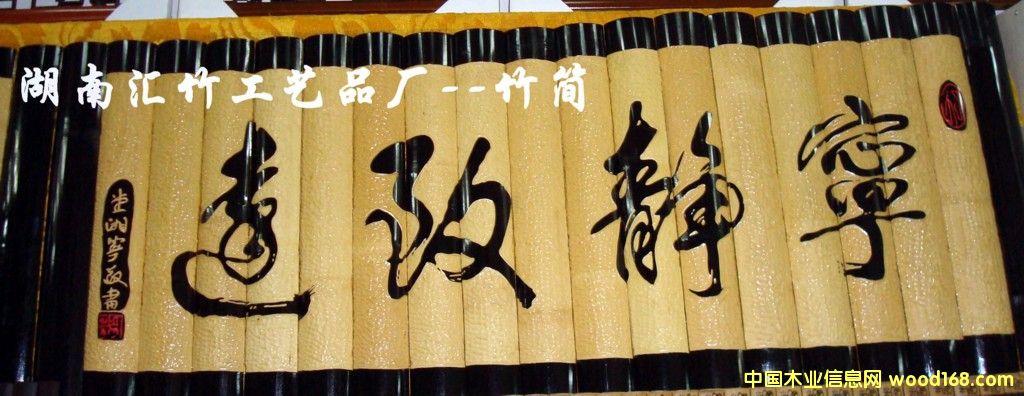 湖南汇竹工艺品厂--竹简
寧靜致遠
中国木业信息网 wood168.com